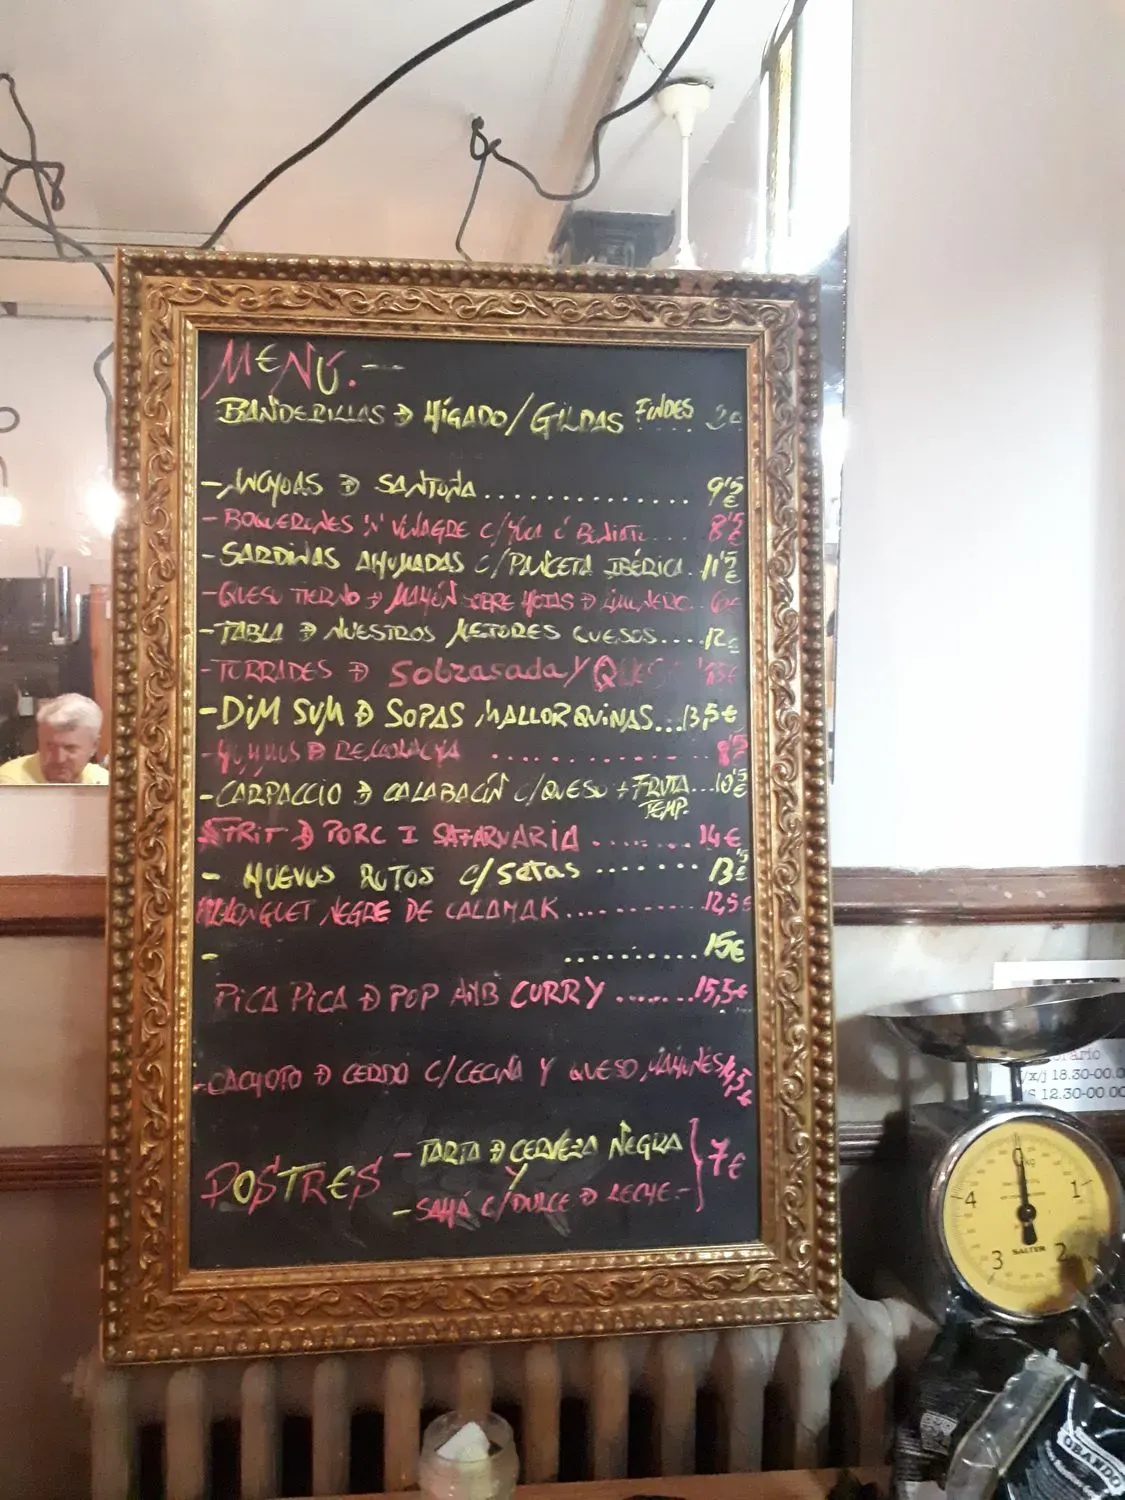 MENÚ.—
BANDERILLAS D HÍGADO/GILDAS FINDES 2€
- ANCHOAS D SANTOÑA.............. 9'5 €
- BOQUERONES VINAGRE C/YUCA Ó BONIATO... 8'5 €
- SARDINAS AHUMADAS C/PANCETA IBÉRICA. 11'5 €
- QUESO TIERNO D MAHÓN SOBRE HOJAS D
- TABLA D NUESTROS MEJORES QUESOS.... 12€
- TORRADES D Sobrasada Y QUESO
- DIM SUM D SOPAS MALLORQUINAS...13,5€
- HUMMUS D REMOLACHA ............. 8'5
- CARPACCIO D CALABACÍN C/QUESO + FRUTA TEMP. ...10'5 €
FRIT D PORC I SAFARNARIA ........ 14€
- HUEVOS ROTOS C/SETAS ....... 13'5 €
LLONGUET NEGRE DE CALAMAR........... 12,5€
- .......... 15€
PICA PICA D POP AMB CURRY .......15,5€
- CACHOPO D CERDO C/CECINA Y QUESO MAHONÉS
POSTRES
- TARTA D CERVEZA NEGRA
Y
- SAHÁ C/DULCE D LECHE.-
7€
orario
/x/j 18.30-00.0
/S 12.30-00.00
0
kg
1
2
3
4
SALTER
OBANDO